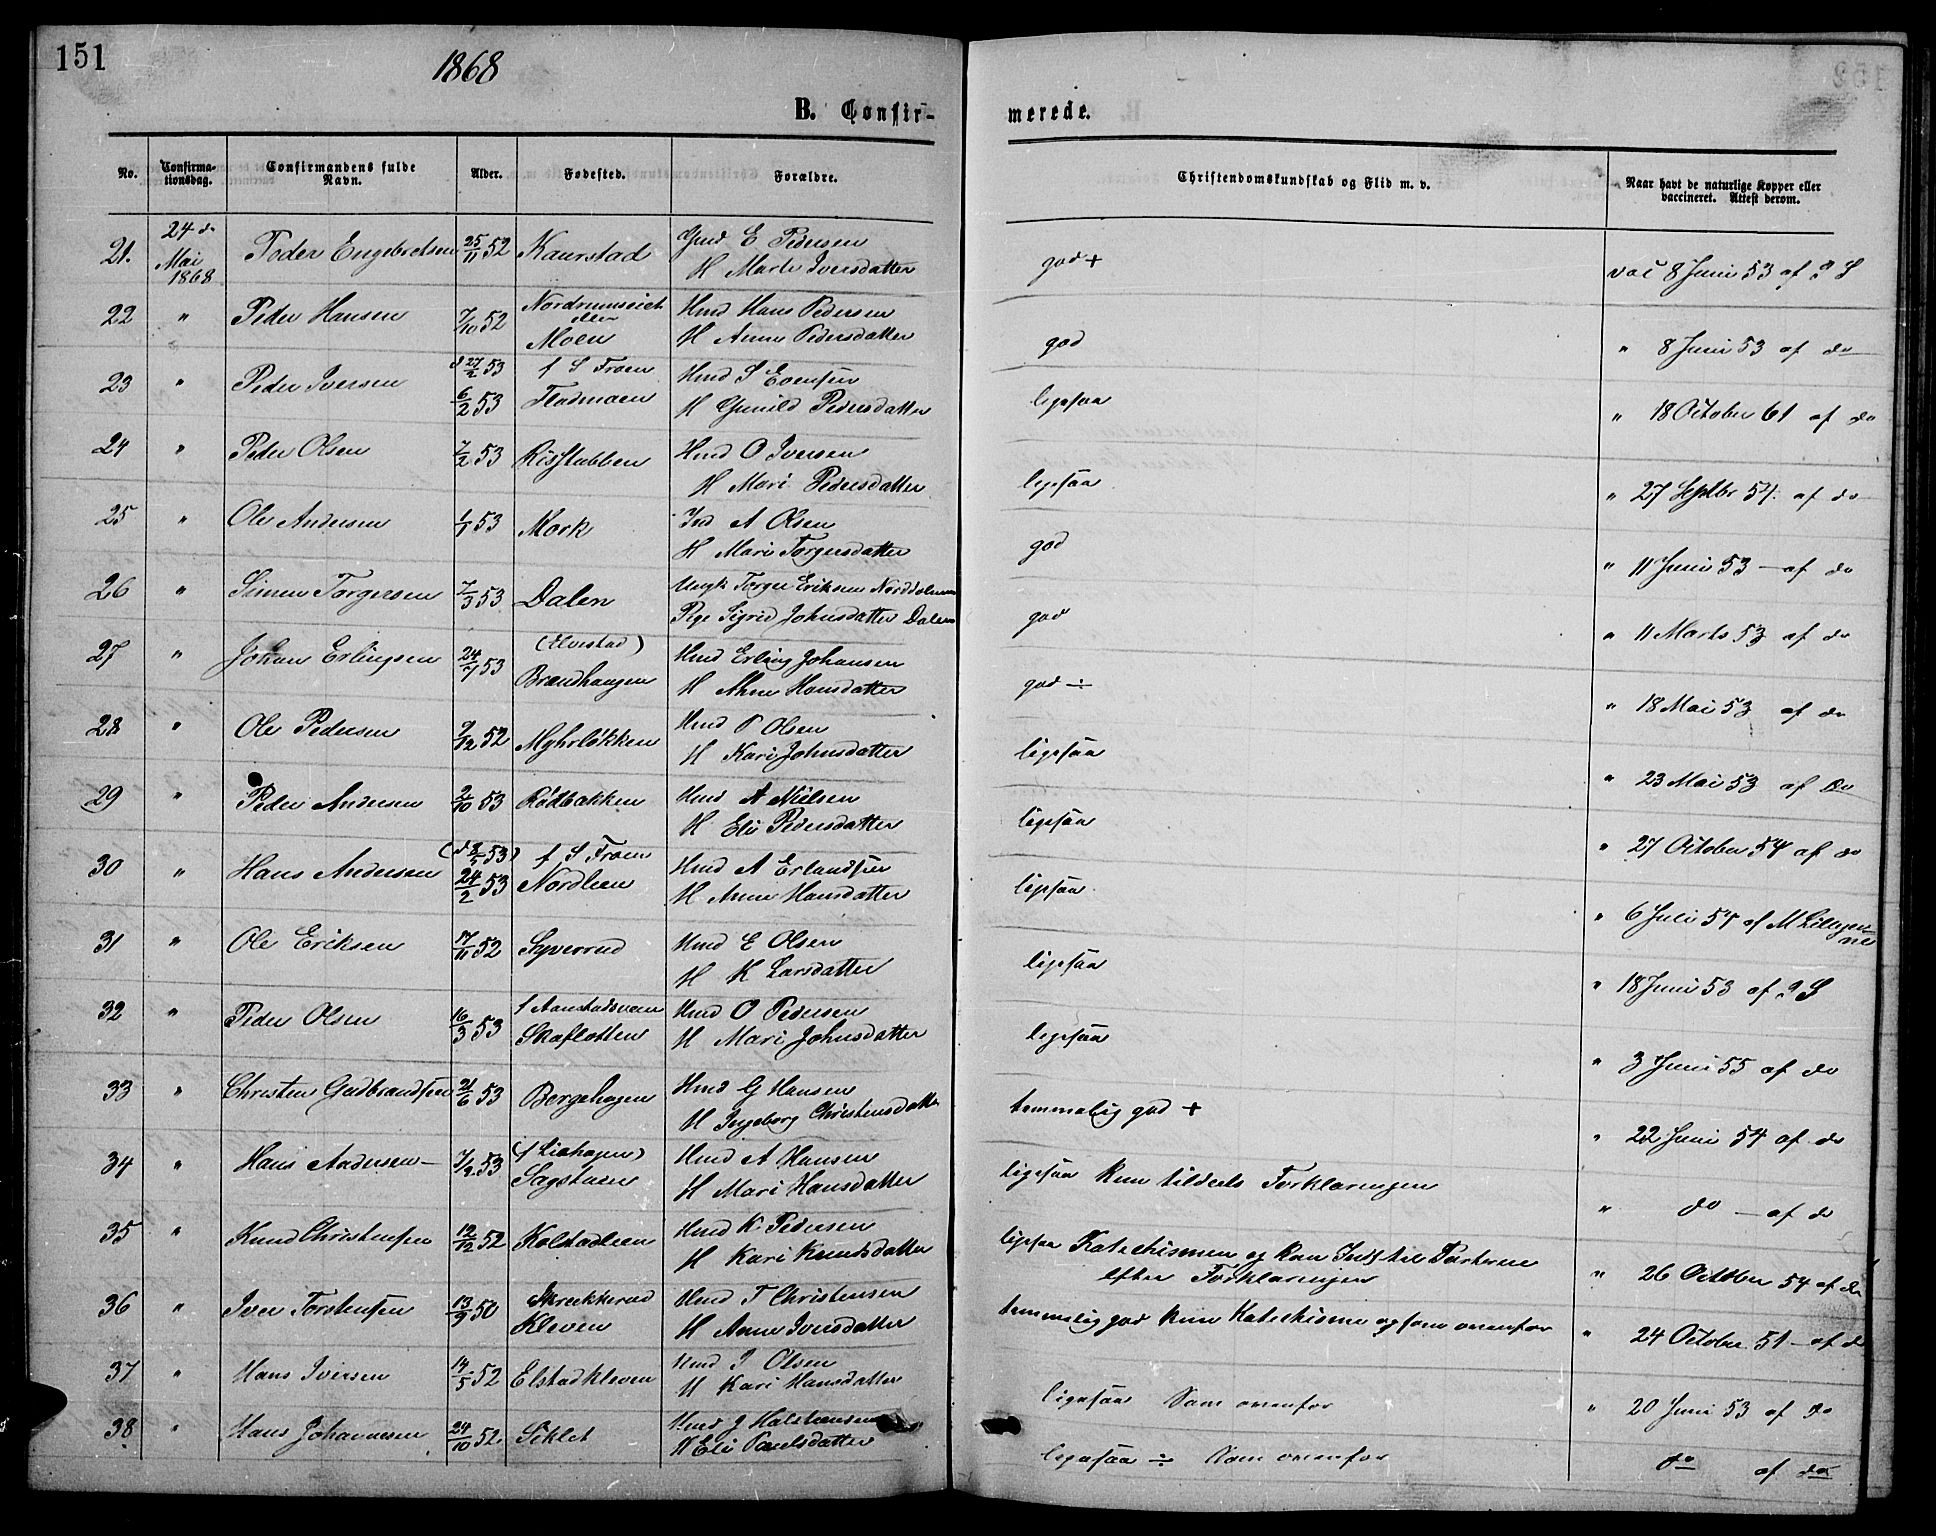 151
1868
B. Confir-
merede.
No. Confirma-tionsdag. Confirmandens fulde Navn. Alder. Fødested. Forældre. Christendomskundskab og Flid m. v. Naar havt de naturlige Kopper eller vaccineret. Attest derom.
21. 24 de Mai 1868 Peder Engebretsen 25/11 52 Kaurstad Gmd E Pedersen
H Marte Iversdatter god + vac 8 Juni 53 af
22 " Peder Hansen 7/10 52 Moen Hmd Hans Pedersen
H Anne Pedersdatter god " 8 Juni 53 af do
23 " Peder Iversen d 27/2 53 f S Froen Hmd I Evensen
6/2 53 Fladmoen H Gunild Pedersdatter ligesaa " 18 October 61 af do
24 " Peder Olsen 7/2 53 Risstubben Hmd O Iversen
H Mari Pedersdatter ligesaa " 27 Septbr 54 af do
25 " Ole Andersen 1/1 53 Mork Ind A Olsen
H Mari Torgersdatter god " 11 Juni 53 – af do
26 " Simen Torgersen 7/3 53 Dalen Ungk Torger Eriksen Norddalen
Pige Sigrid Johnsdatter Dalen god " 11 Marts 53 af do
27 " Johan Erlingsen 24/7 53 (Elvestad) Hmd Erling Johansen
Brandhaugen H Anne Hansdatter god ÷ " 18 Mai 53 af do
28 " Ole Pedersen 9/12 52 Myhrløkken Hmd P Olsen
H Kari Johnsdatter ligesaa " 23 Mai 53 af do
29 " Peder Andersen 2/10 53 Rødbakken Hmd A Nielsen
H Eli Pedersdatter ligesaa " 27 October 54 af do
30 " Hans Andersen (d 8/5 53) f S Froen Hmd A Erlandsen
24/2 53 Nordleen H Anne Hansdatter ligesaa " 6 Juli 54 af M
31 " Ole Eriksen 17/11 52 Syverrud Hmd E Olsen
H K Larsdatter ligesaa " 18 Juni 53 af
32 " Peder Olsen 16/3 53 Skaflotten Hmd O Pedersen
H Mari Johnsdatter ligesaa " 3 Juni 55 af do
33 " Christen Gudbrandsen 21/6 53 Bergehagen Hmd G Hansen
H Ingeborg Christensdatter temmelig god + " 22 Juni 54 af do
34 " Hans Andersen 7/2 53 (f Liahagen) Hmd A Hansen
Sagstuen H Mari Hansdatter ligesaa kun tildeels Forklaringen " do – af do
35 " Knud Christensen 12/12 52 Kolstadleen Hmd K Pedersen
H Kari Knudsdatter ligesaa Katechismen og kun Indtil Parterne
efter Forklaringen " 26 Octbr 54 af do
36 " Iver Torstensen 13/9 50 Kleven Hmd T Christensen
H Anne Iversdatter temmelig god kun Katechisme og som ovenfor " 24 October 51 – af do
37 " Hans Iversen 14/5 52 Elstadkleven Hmd I Olsen
H Kari Hansdatter ligesaa Som ovenfor " 20 Juni 53 af do
38 " Hans Johannesen 24/10 52 Siklet Hmd J Halstensen
H Eli Paulsdatter ligesaa ÷ Som ovenfor do af do